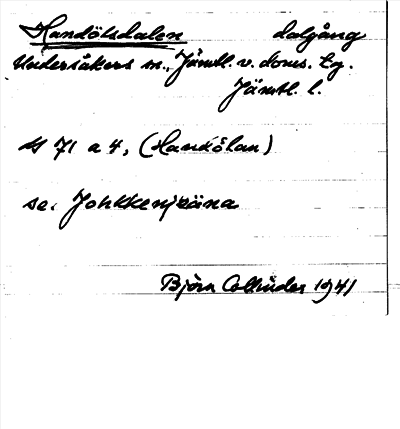 Handölsdalen dalgång
Undersåkers sn., Jämtl. v. doms. tg.
Jämtl. l.
H 71 a 4, (Handölan)
se. Johkkenjaäna
Björn Collinder 1941